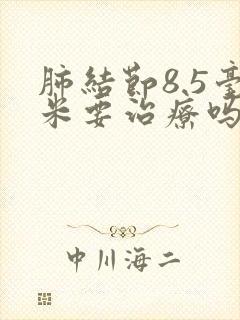 肺結節8.5毫
米要治療嗎
中川海二